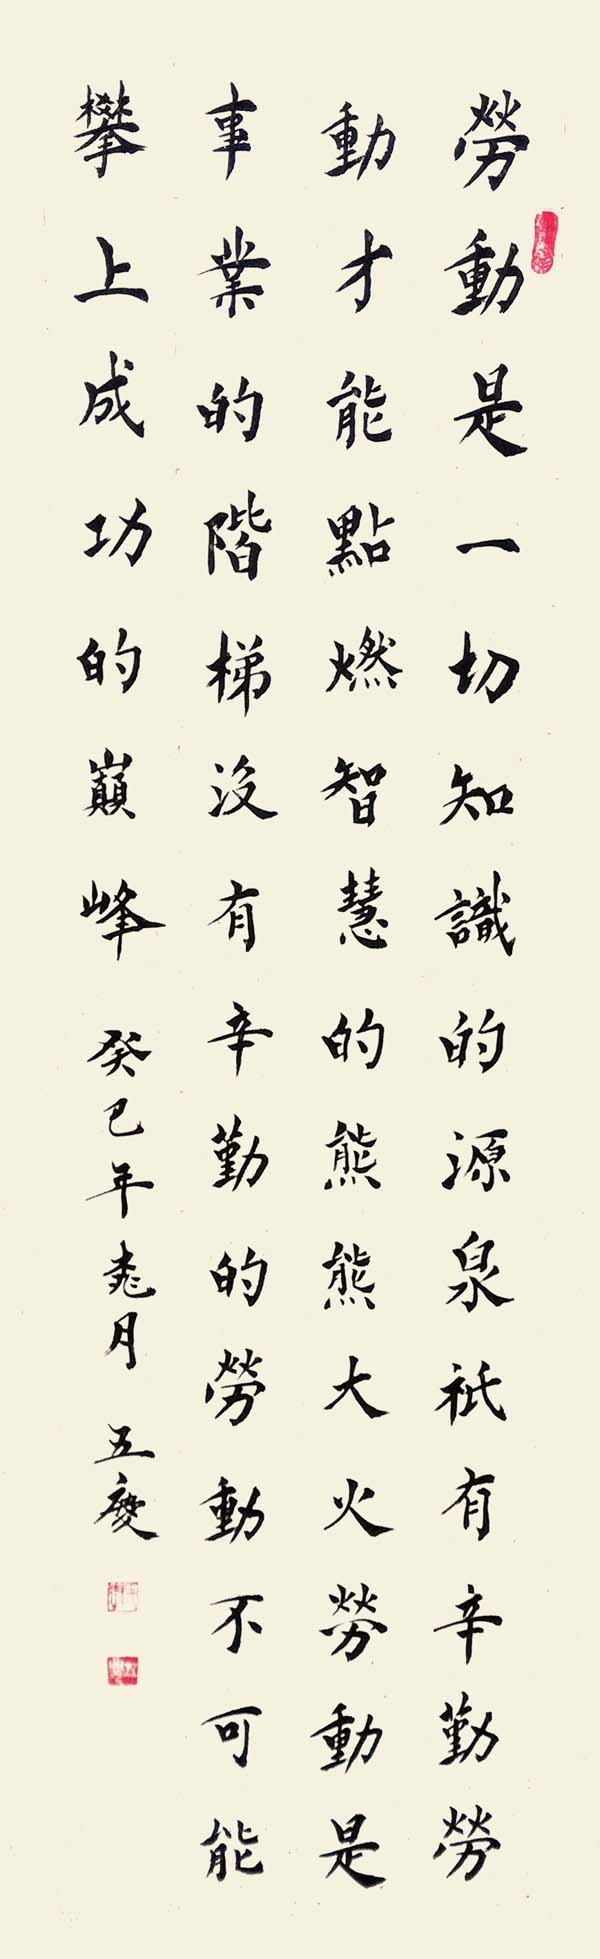 勞動是一切知識的源泉祇有辛勤勞
動才能點燃智慧的熊熊大火勞動是
事業的階梯沒有辛勤的勞動不可能
攀上成功的巔峰
癸巳年桃月 五慶